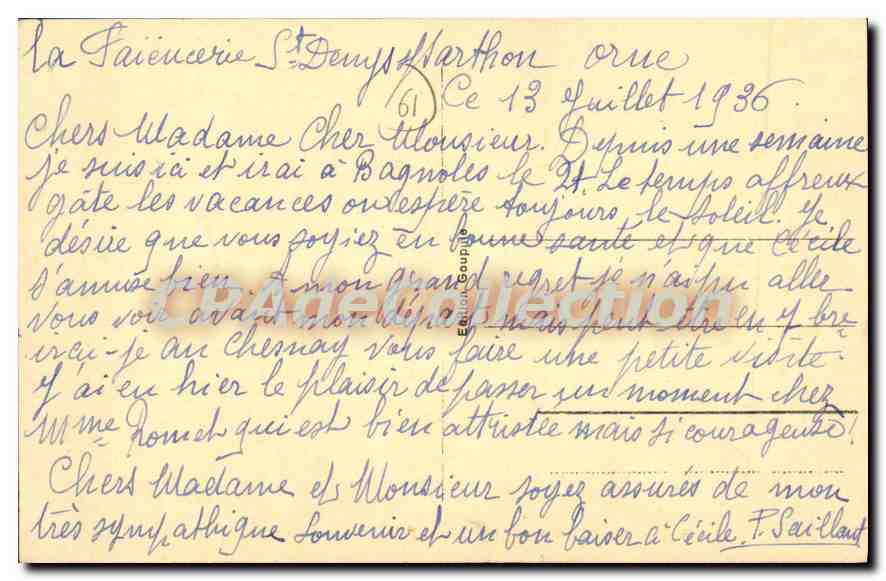 La Faïencerie St Denys s/Sarthon Orne
61
Ce 13 Juillet 1936.
Chers Madame Cher Monsieur. Depuis une semaine
je suis ici et irai à Bagnoles le 21. Le temps affreux
gâte les vacances on espère toujours le soleil. Je
désire que vous soyiez en bonne santé et que Cécile
s'amuse bien. A mon grand regret je n'ai pu aller
vous voir avant mon départ mais peut être en 7bre
irai-je au Chesnay vous faire une petite visite.
J'ai eu hier le plaisir de passer un moment chez
Mme Romet qui est bien attristée mais si courageuse!
Chers Madame et Monsieur soyez assurés de mon
très sympathique souvenir et un bon baiser à Cécile. P. Saillant
Edition Goupille
CPAgeCollection